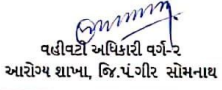 વહીવટી અધિકારી વર્ગ-૨
આરોગ્ય શાખા, જિ.પં.ગીર સોમનાથ